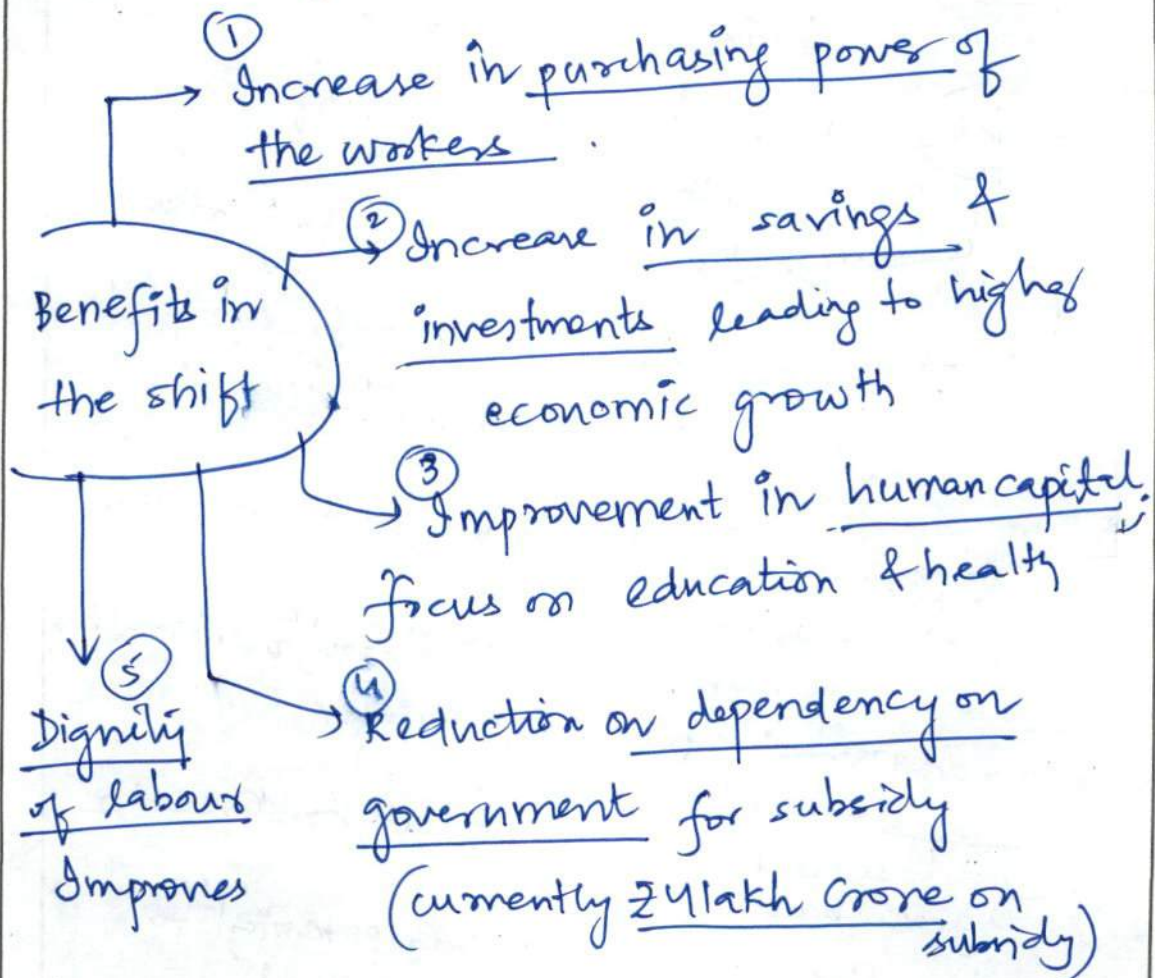 Benefits in
the shift
①
Increase in purchasing power of
the workers.
②
Increase in savings &
investments leading to higher
economic growth
③
Improvement in human capital;
focus on education & health
④
Reduction on dependency on
government for subsidy
(currently ₹4lakh Crore on
subsidy)
⑤
Dignity
of labour
Improves